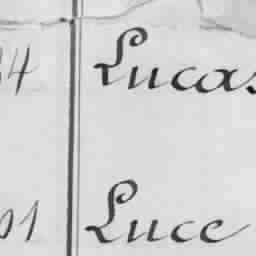 34 Lucas
01 Luce